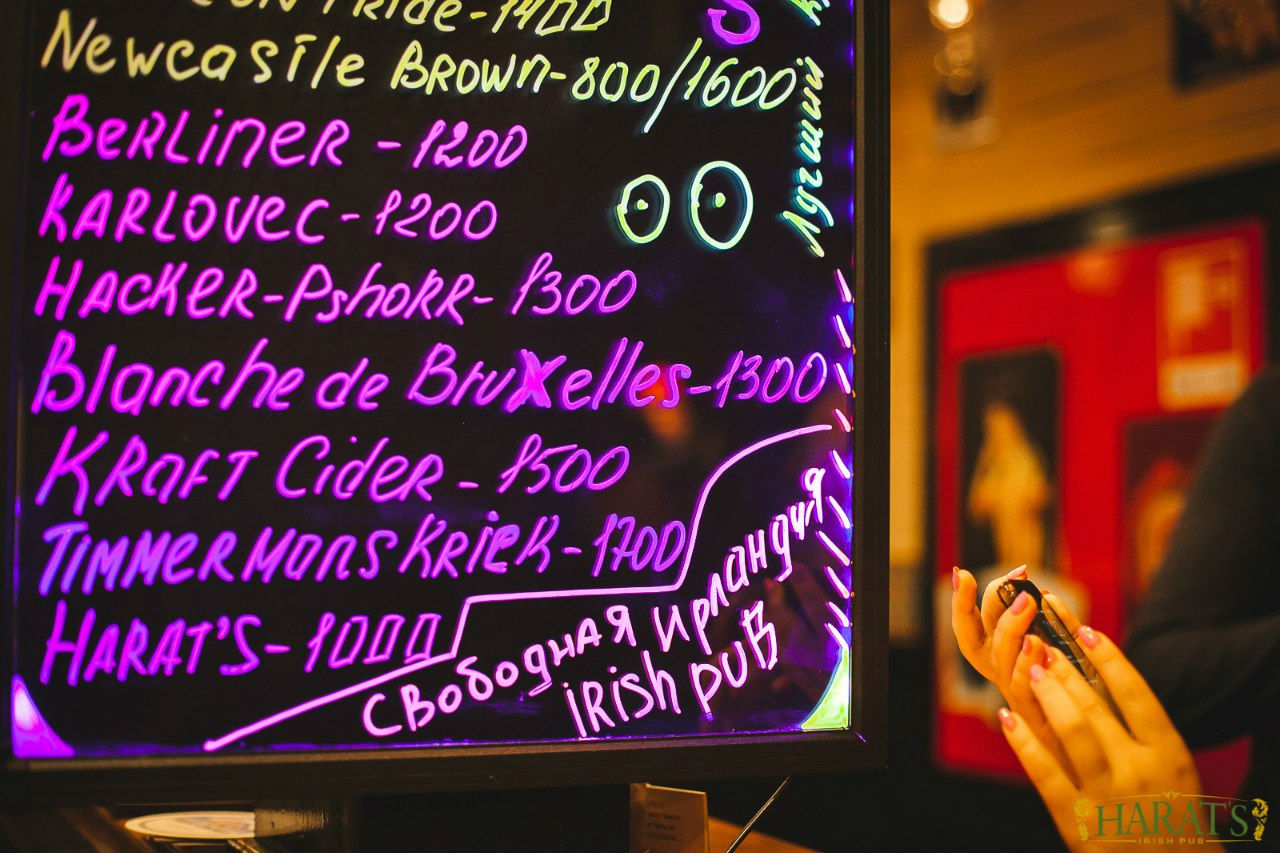 Pride-1400
Newcastle Brown-800/1600
Berliner - 1200
Karlovec - 1200
Hacker-Pshorr- 1300
Blanche de Bruxelles-1300
Kraft Cider - 1500
Timmermans Kriek-1700
Harat's-1000
Свободная Ирландия
Irish Pub
Лучший
HARAT'S
IRISH PUB